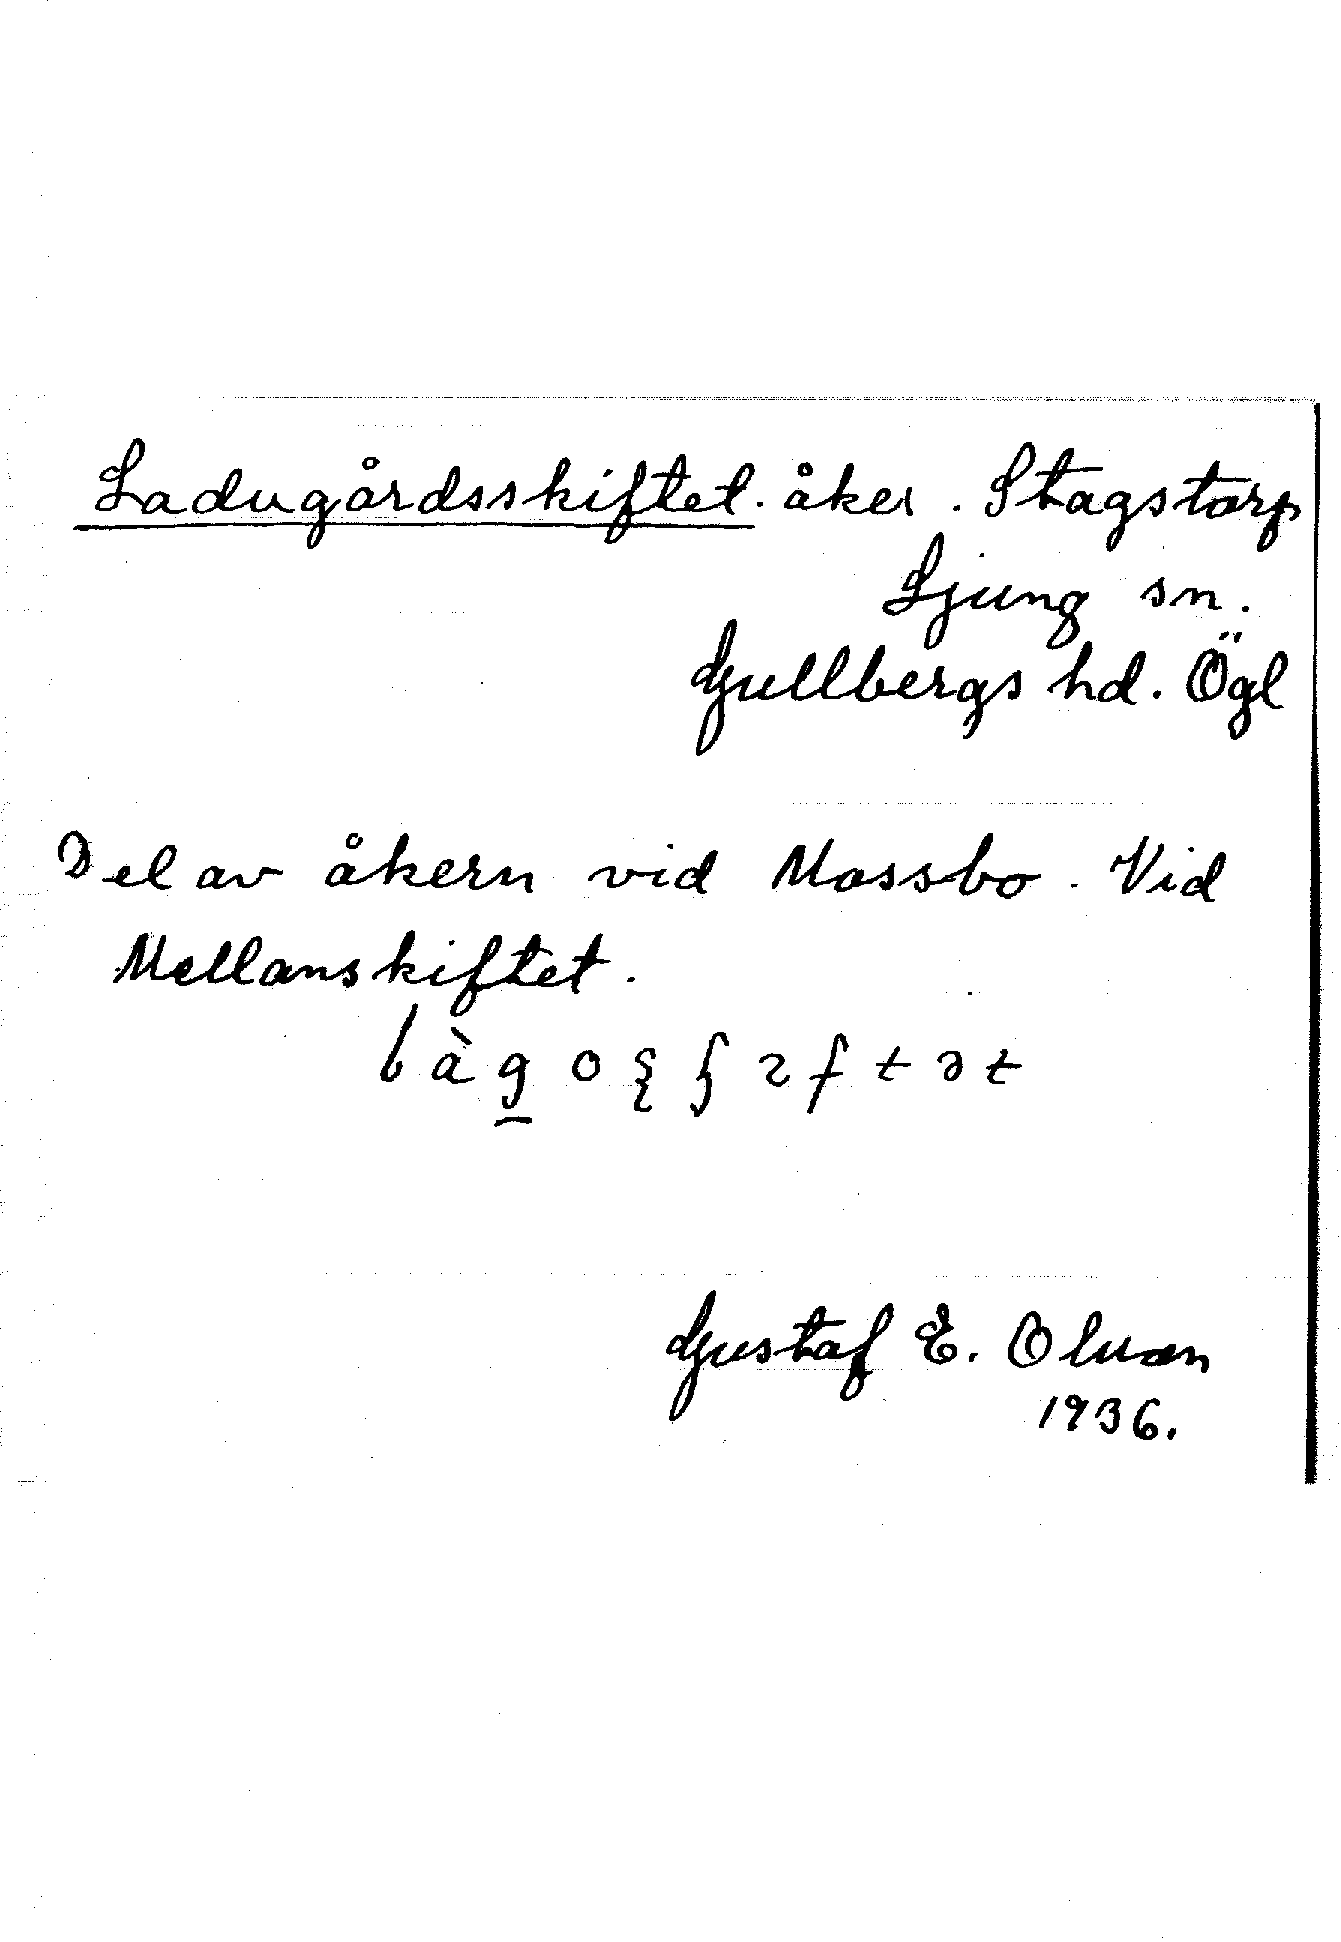 Ladugårdsskiftet. åker. Stagstorp
Ljung sn.
Gullbergs hd. Ögl
Del av åkern vid Mossbo. Vid
Mellanskiftet.
Gustaf E. Olsson
1936.